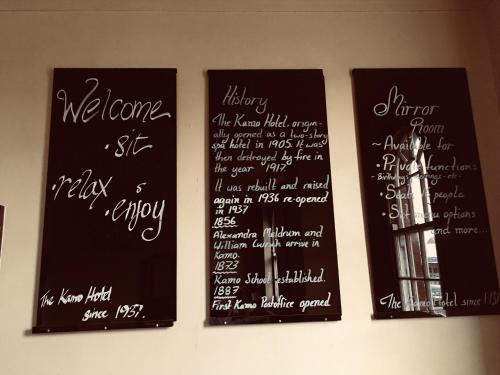 Welcome
• sit
• relax &
• enjoy
The Kamo Hotel
since 1937.
History
The Kamo Hotel, origin-
ally opened as a two-story
spa hotel in 1905. It was
then destroyed by fire in
the year 1917.
It was rebuilt and raised
again in 1936 re-opened
in 1937
1856
Alexandra Meldrum and
William arrive in
Kamo.
1873
Kamo School established.
1887
First Kamo Postoffice opened
Mirror
Room
~ Available for
• Private functions
~ Birthdays etc.
• people
• menu options
and more...
The Kamo Hotel since